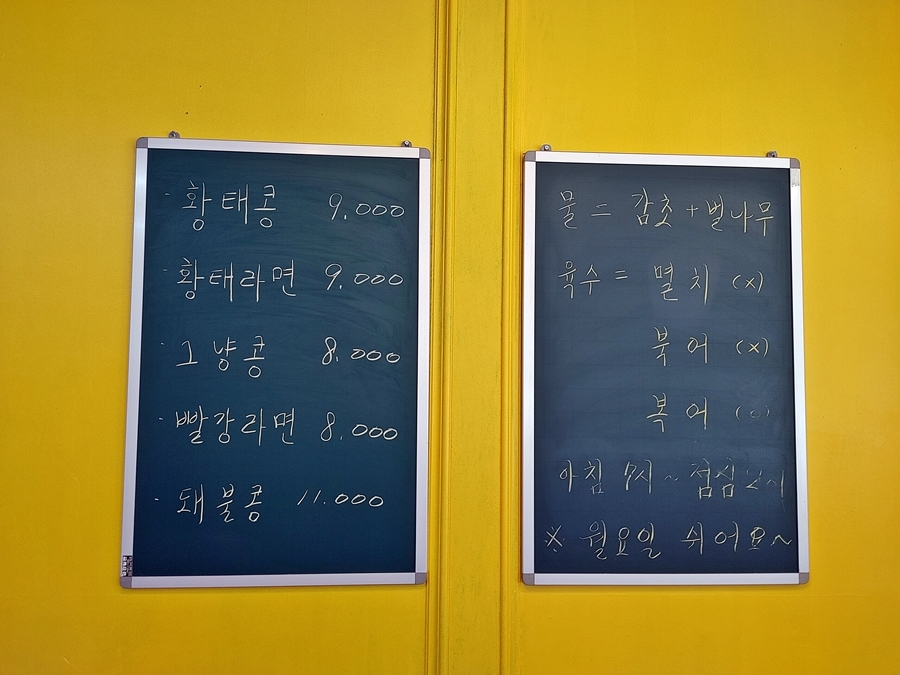 · 황태콩 9.000
· 황태라면 9.000
· 그냥콩 8.000
· 빨강라면 8.000
· 돼불콩 11.000
물 = 감초 + 벌나무
육수 = 멸치 (x)
북어 (x)
복어 (○)
아침 7시 ~ 점심
※ 월요일 쉬어요~